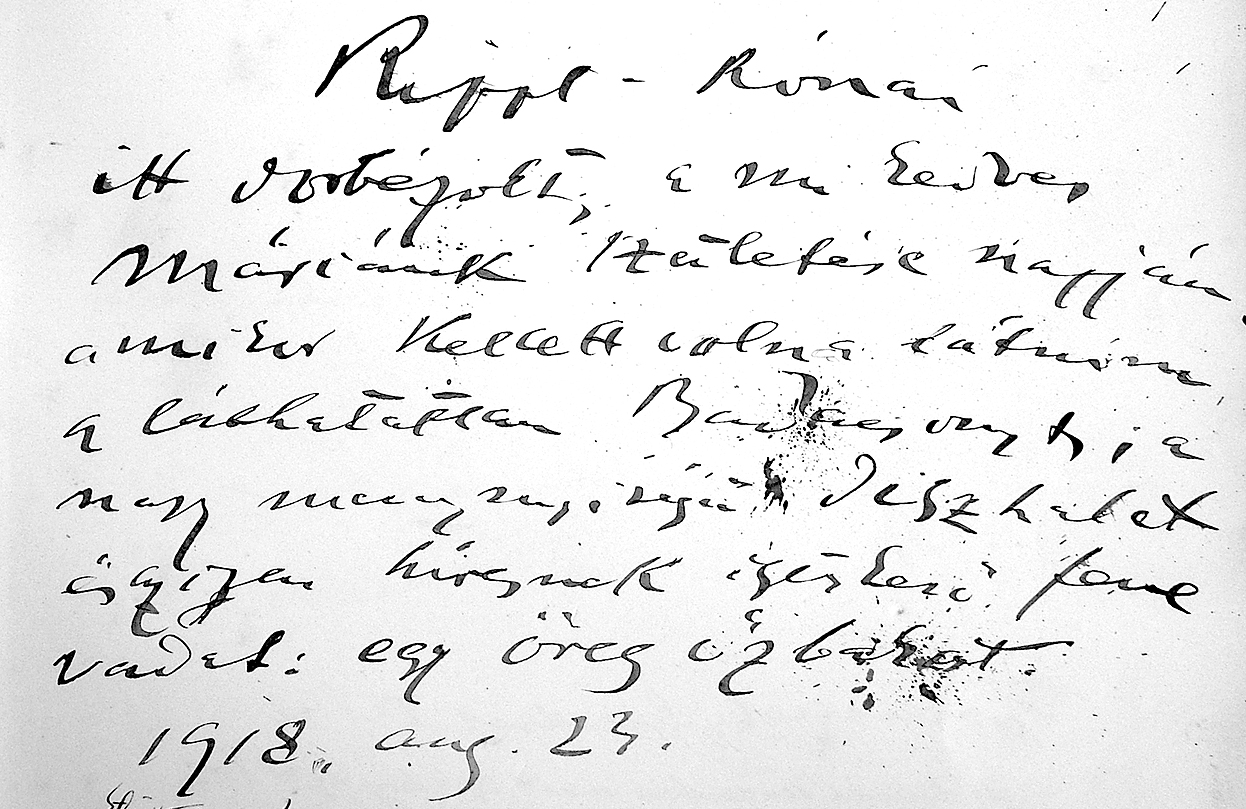 Rippl-Rónai
itt dorbézolt, a mi kedves
Máriánk születése napján
amikor kellett volna látnom
a láthatatlan Badacsonyt, a
nagy mennyiségű díszhalat
és igen híresnek ígérkező fene
vadat: egy öreg őzbakot.
1918. aug. 23.